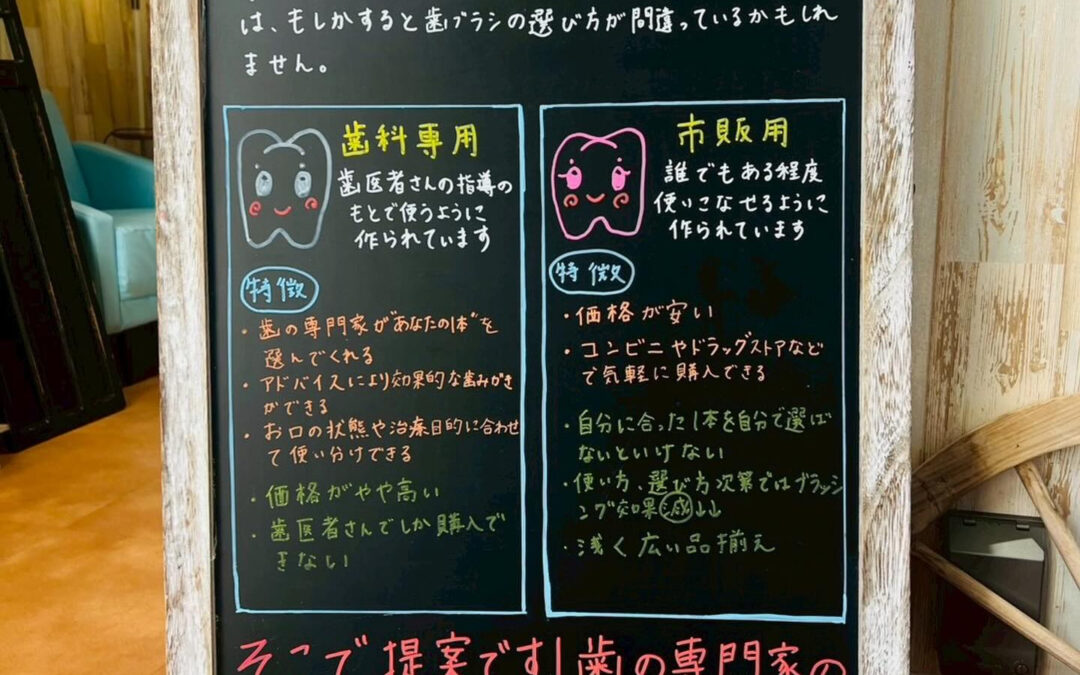 は、もしかすると歯ブラシの選び方が間違っているかもしれ
ません。
歯科専用
歯医者さんの指導の
もとで使うように
作られています
特徴
・歯の専門家が"あなたの1本"を
選んでくれる
・アドバイスにより効果的な歯みがき
ができる
・お口の状態や治療目的に合わせ
て使い分けできる
・価格がやや高い
・歯医者さんでしか購入で
きない
市販用
誰でもある程度
使いこなせるように
作られています
特徴
・価格が安い
・コンビニやドラッグストアなど
で気軽に購入できる
・自分に合った1本を自分で選ば
ないといけない
・使い方、選び方次第ではブラッシ
ング効果減↓↓
・浅く広い品揃え
そこで提案です!歯の専門家の